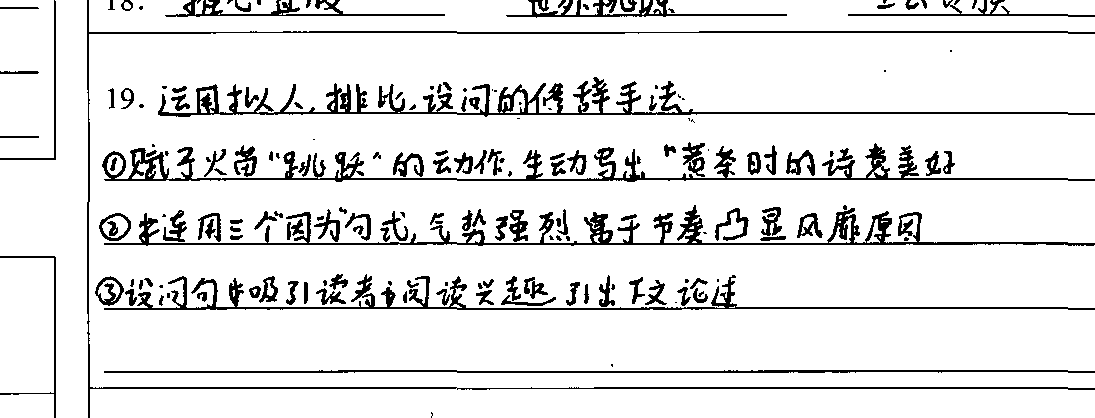 18. 推心置腹 世外桃源
19. 运用拟人,排比,设问的修辞手法,
①赋予火苗"跳跃"的动作,生动写出"煮茶时的诗意美好
②连用三个因为"句式,气势强烈,富于节奏凸显风靡原因
③设问句吸引读者阅读兴趣 引出下文论述